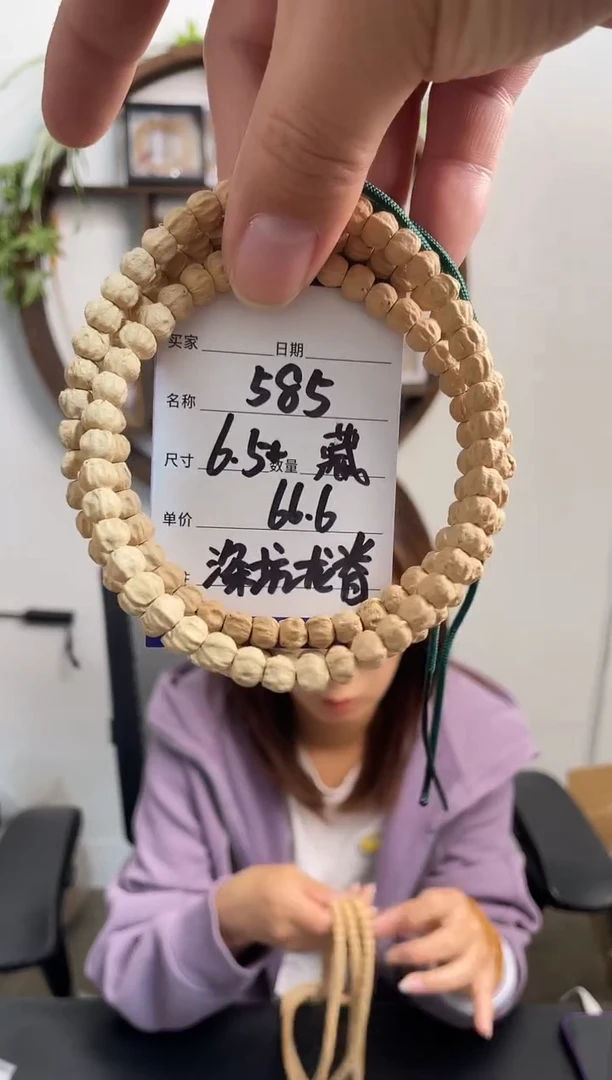 买家 日期
名称 585
尺寸 6.5+ 数量 藏
单价 66.6
深坑龙脊